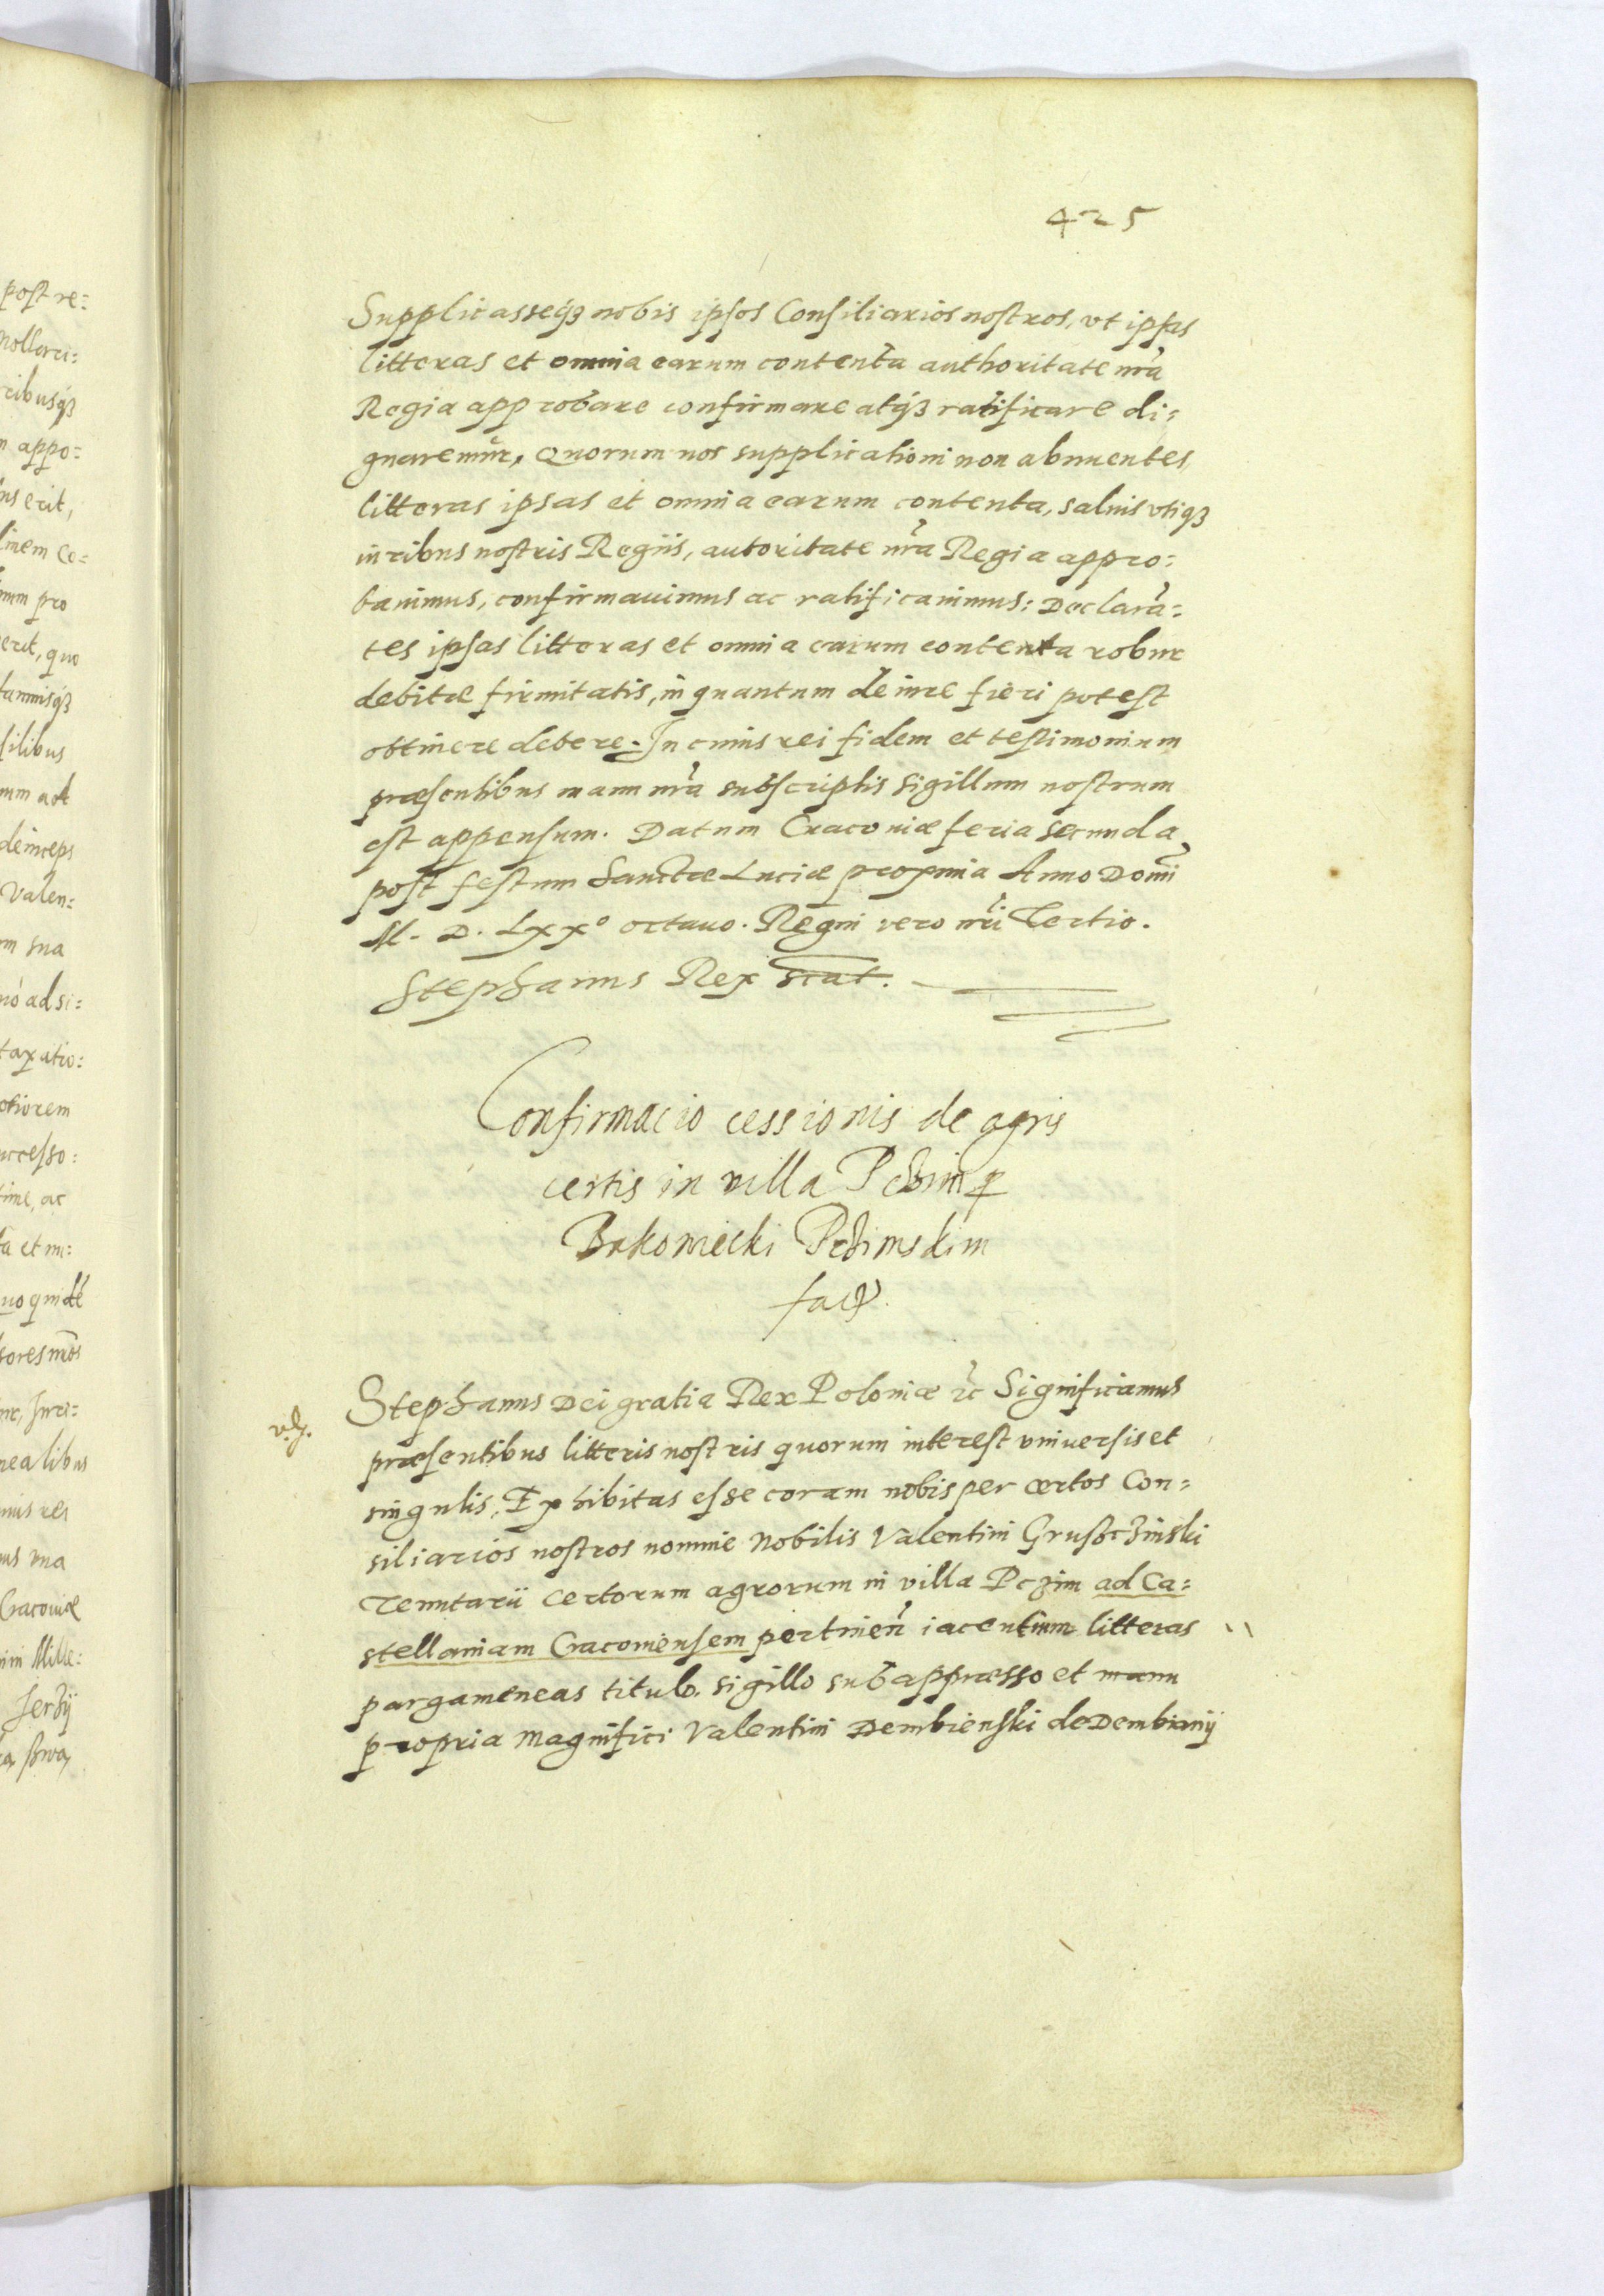 425
Supplicasseq3 nobis ipsos Consiliarios nostros, vt ipsas
litteras et omnia earum contenta authoritate nra
Regia approbare confirmare atq3 ratificare di=
gnaremur, Quorum nos supplicationi non abnuentes
litteras ipsas et omnia earum contenta, saluis vtiq3
iuribus nostris Regiis, autoritate nra Regia appro=
bauimus, confirmauimus ac ratificauimus: Declara=
tes ipsas litteras et omnia earum contenta robur
debitæ firmitatis, in quantum de iure fieri potest
obtinere debere. In cuius rei fidem et testimonium
præsentibus manu nra subscriptis sigillum nostrum
est appensum. Datum Cracouiæ feria secunda
post festum Sanctæ Luciæ proxima Anno Domi
M. D. Lxx° octauo. Regni vero nri Tertio.
Stephanus Rex scat.
Confirmacio cessionis de agris
certis in villa Pczim p
Bukowiecki Pczimskim
fact
v.g.
Stephanus Dei gratia Rex Poloniæ rc Significamus
præsentibus litteris nostris quorum interest vniuersis et
singulis, Exhibitas esse coram nobis per certos Con=
siliarios nostros nomine Nobilis Valentini Grusczinski
Tenutarii certorum agrorum in villa Pczim ad Ca=
stellaniam Cracouiensem pertinen iacentium litteras
pargameneas titulo, sigillo subappresso et manu
propria Magnifici Valentini Dembienski de Dembianij